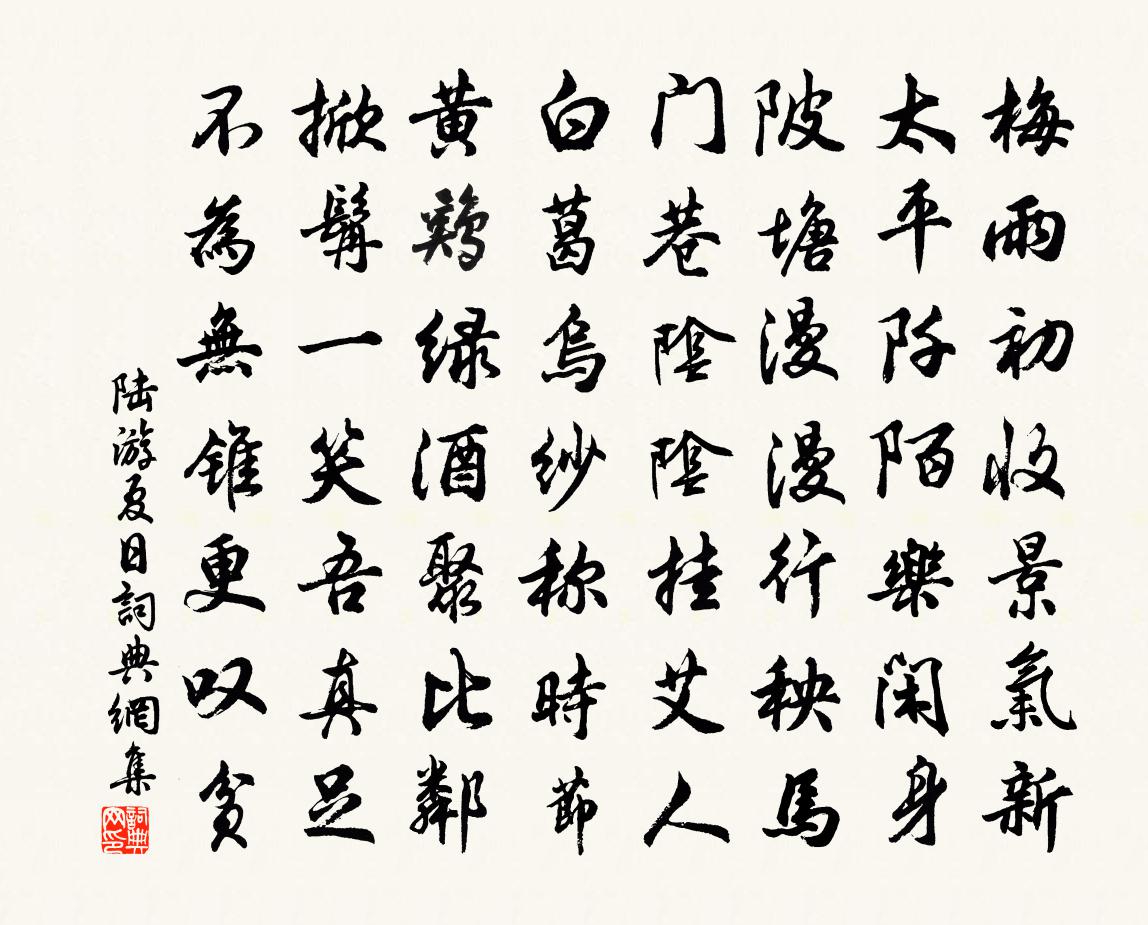 梅雨初收景氣新
太平阡陌樂闲身
陂塘漫漫行秧馬
门巷陰陰挂艾人
白葛烏紗称時節
黄鷄緑酒聚比鄰
掀髯一笑吾真足
不為無錐更叹貧
陆游夏日詞典網集
詞典网印